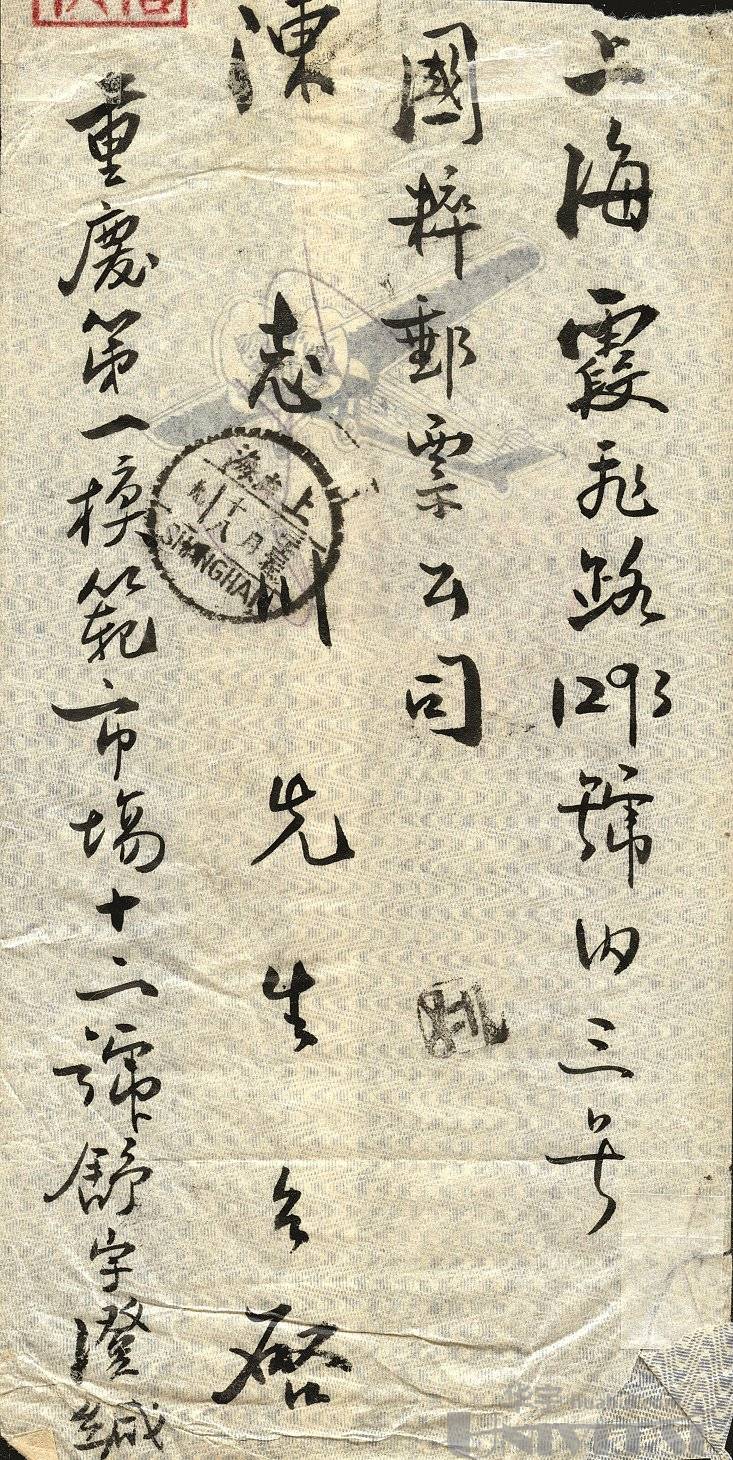 上海霞飛路1293號內三号
國粹郵票公司
陳志川先生台啓
重慶第一模範市場十二號舒宇澄緘
上海
SHANGHAI
十八
月
华宇